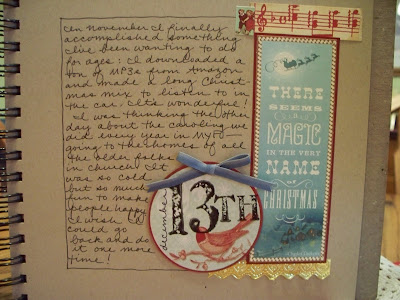 In November I finally
accomplished something
I've been wanting to do
for ages: I downloaded a
ton of MP3s from Amazon
and made a long Christ-
mas mix to listen to in
the car. It's wonderful!
I was thinking the other
day about the caroling we
did every year in MYF:
going to the homes of all
the older folks
in church. It
was so cold
but so much
fun to make
people happy.
I wish I
could go
back and do
it one more
time!
december
13TH
THERE
SEEMS
MAGIC
IN THE VERY
NAME
OF
CHRISTMAS